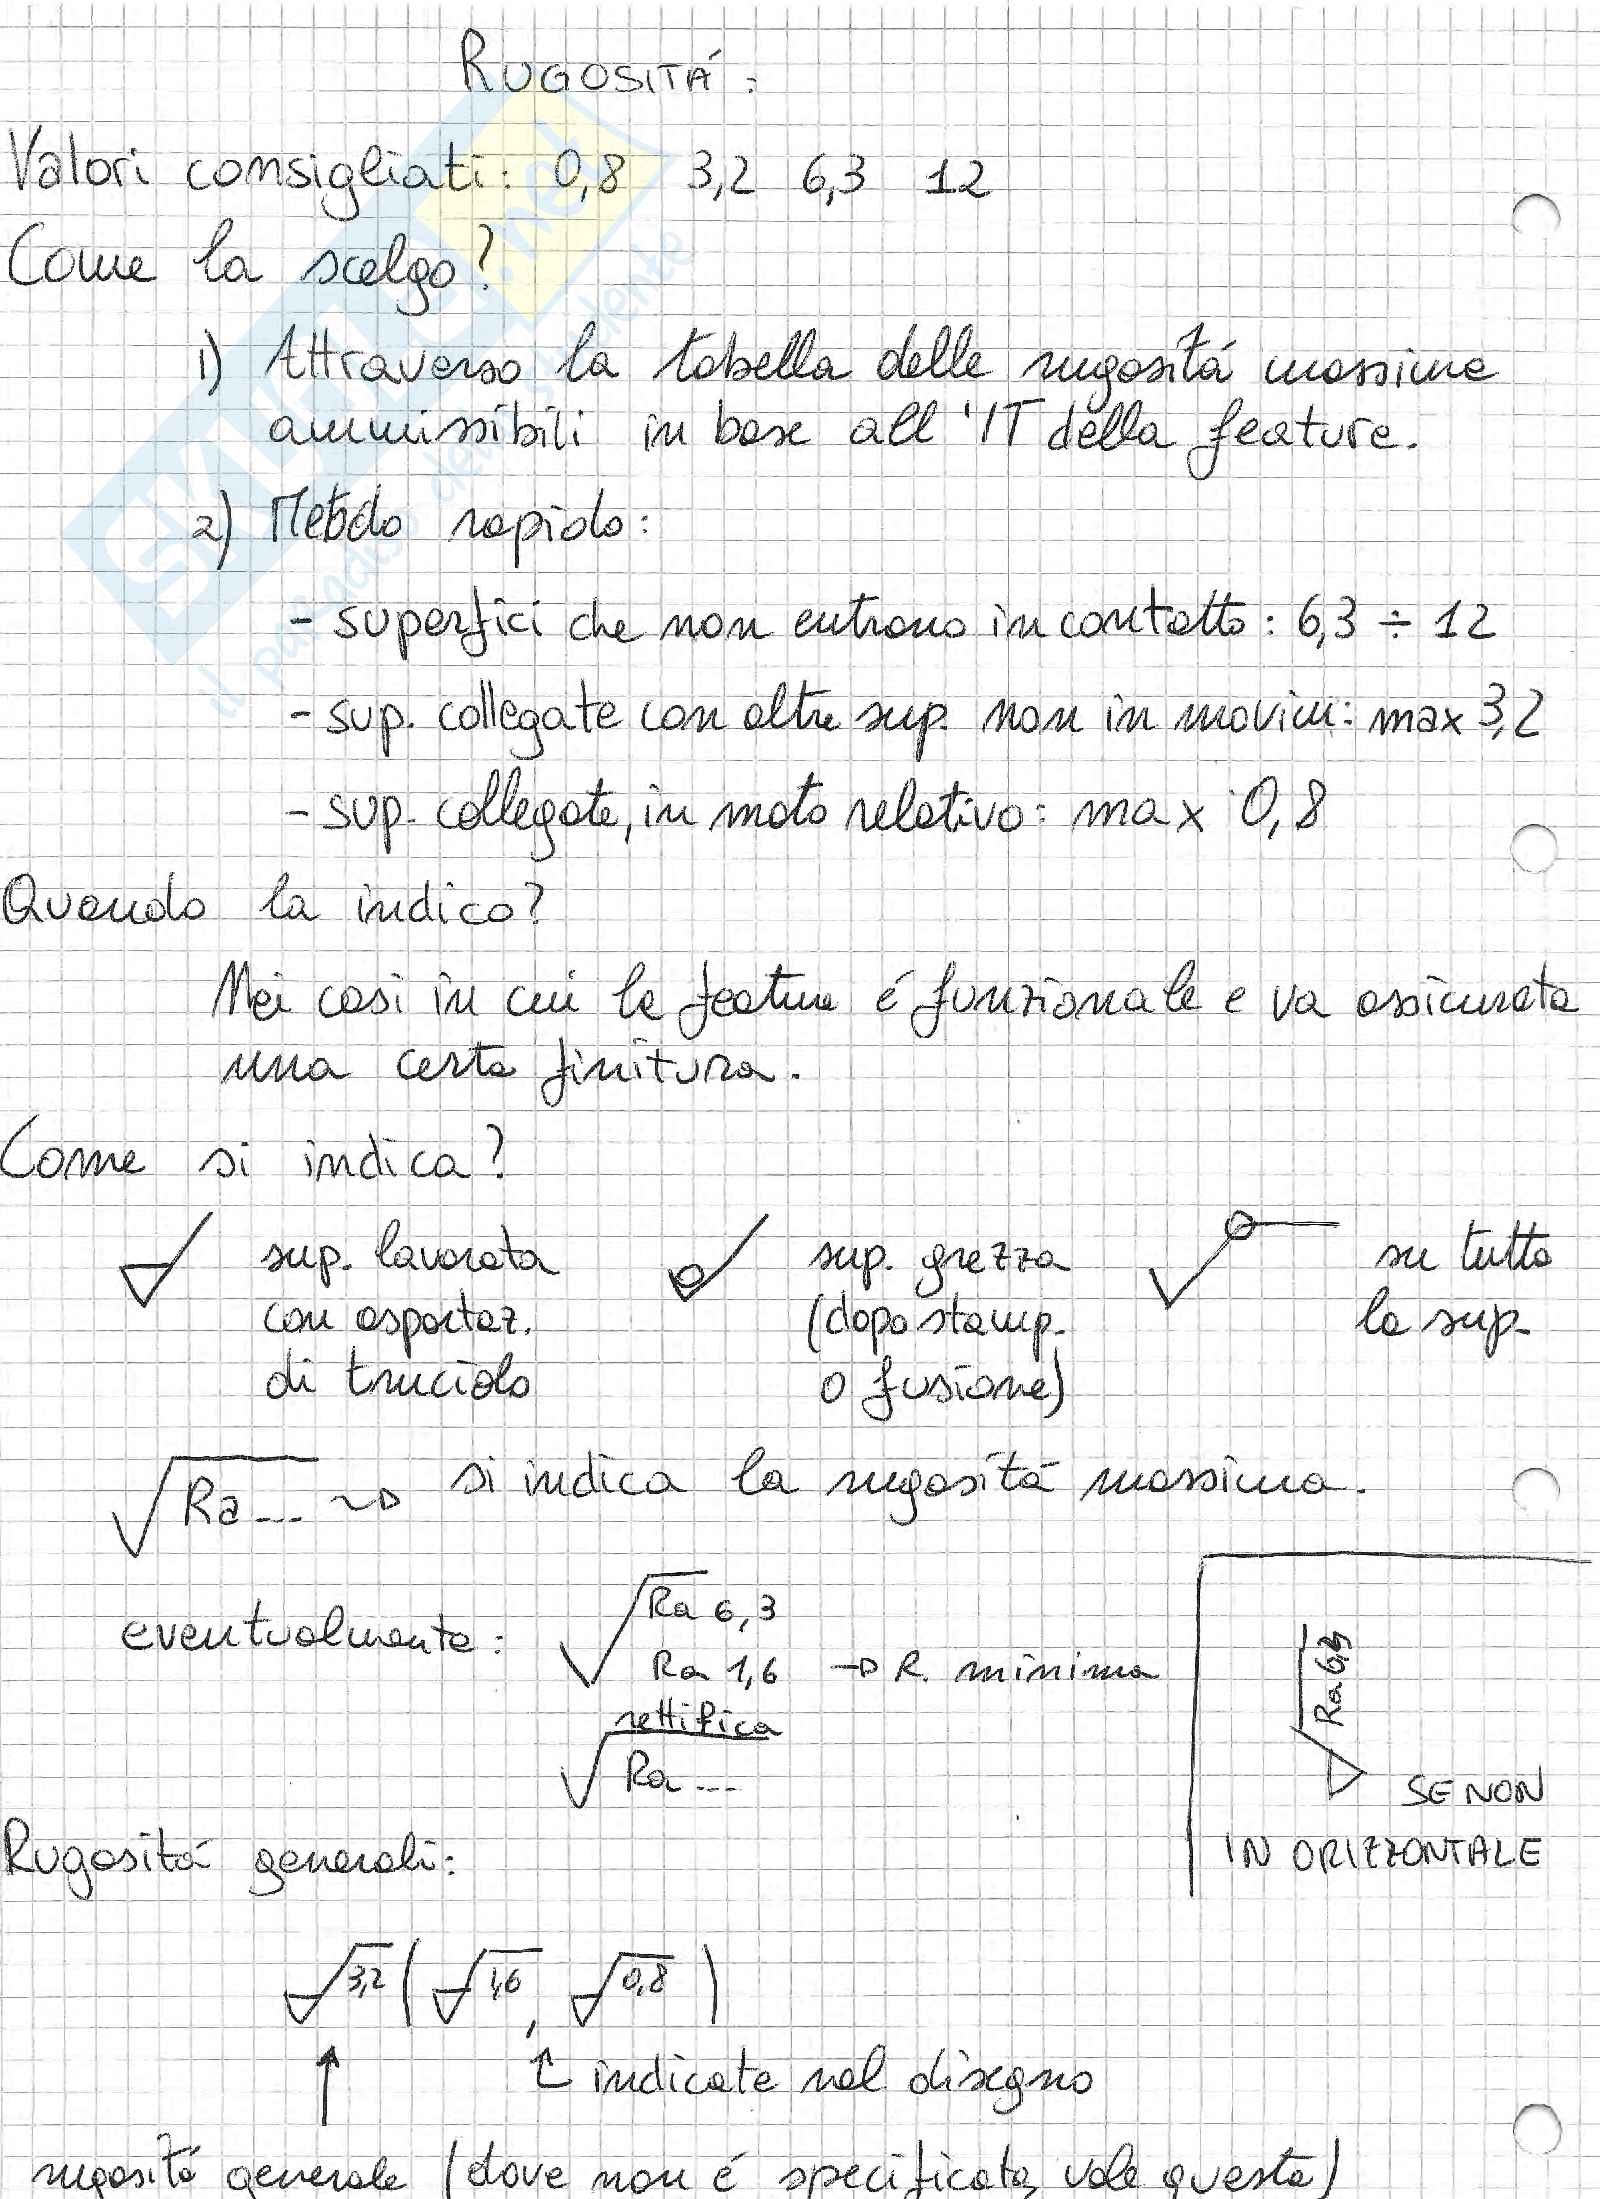 RUGOSITÁ:
Valori consigliati: 0,8 3,2 6,3 12
Come la scelgo?
1) Attraverso la tabella delle rugositá massime
ammissibili in base all'IT della feature.
2) Metodo rapido:
- superfici che non entrano in contatto: 6,3 ÷ 12
- sup. collegate con altre sup. non in movim: max 3,2
- sup. collegate, in moto relativo: max 0,8
Quando la indico?
Nei casi in cui la feature é funzionale e va assicurata
una certa finitura.
Come si indica?
sup. lavorata
con asportaz.
di truciolo
sup. grezza
(dopo stamp.
o fusione)
su tutta
la sup.
Ra... si indica la rugositá massima.
eventualmente:
Ra 6,3
Ra 1,6 → R. minima
rettifica
Ra ...
Ra 6,3
SE NON
IN ORIZZONTALE
Rugositá generali:
3,2 ( 1,6 , 0,8 )
↑ indicate nel disegno
rugositá generale (dove non é specificata, vale questa)